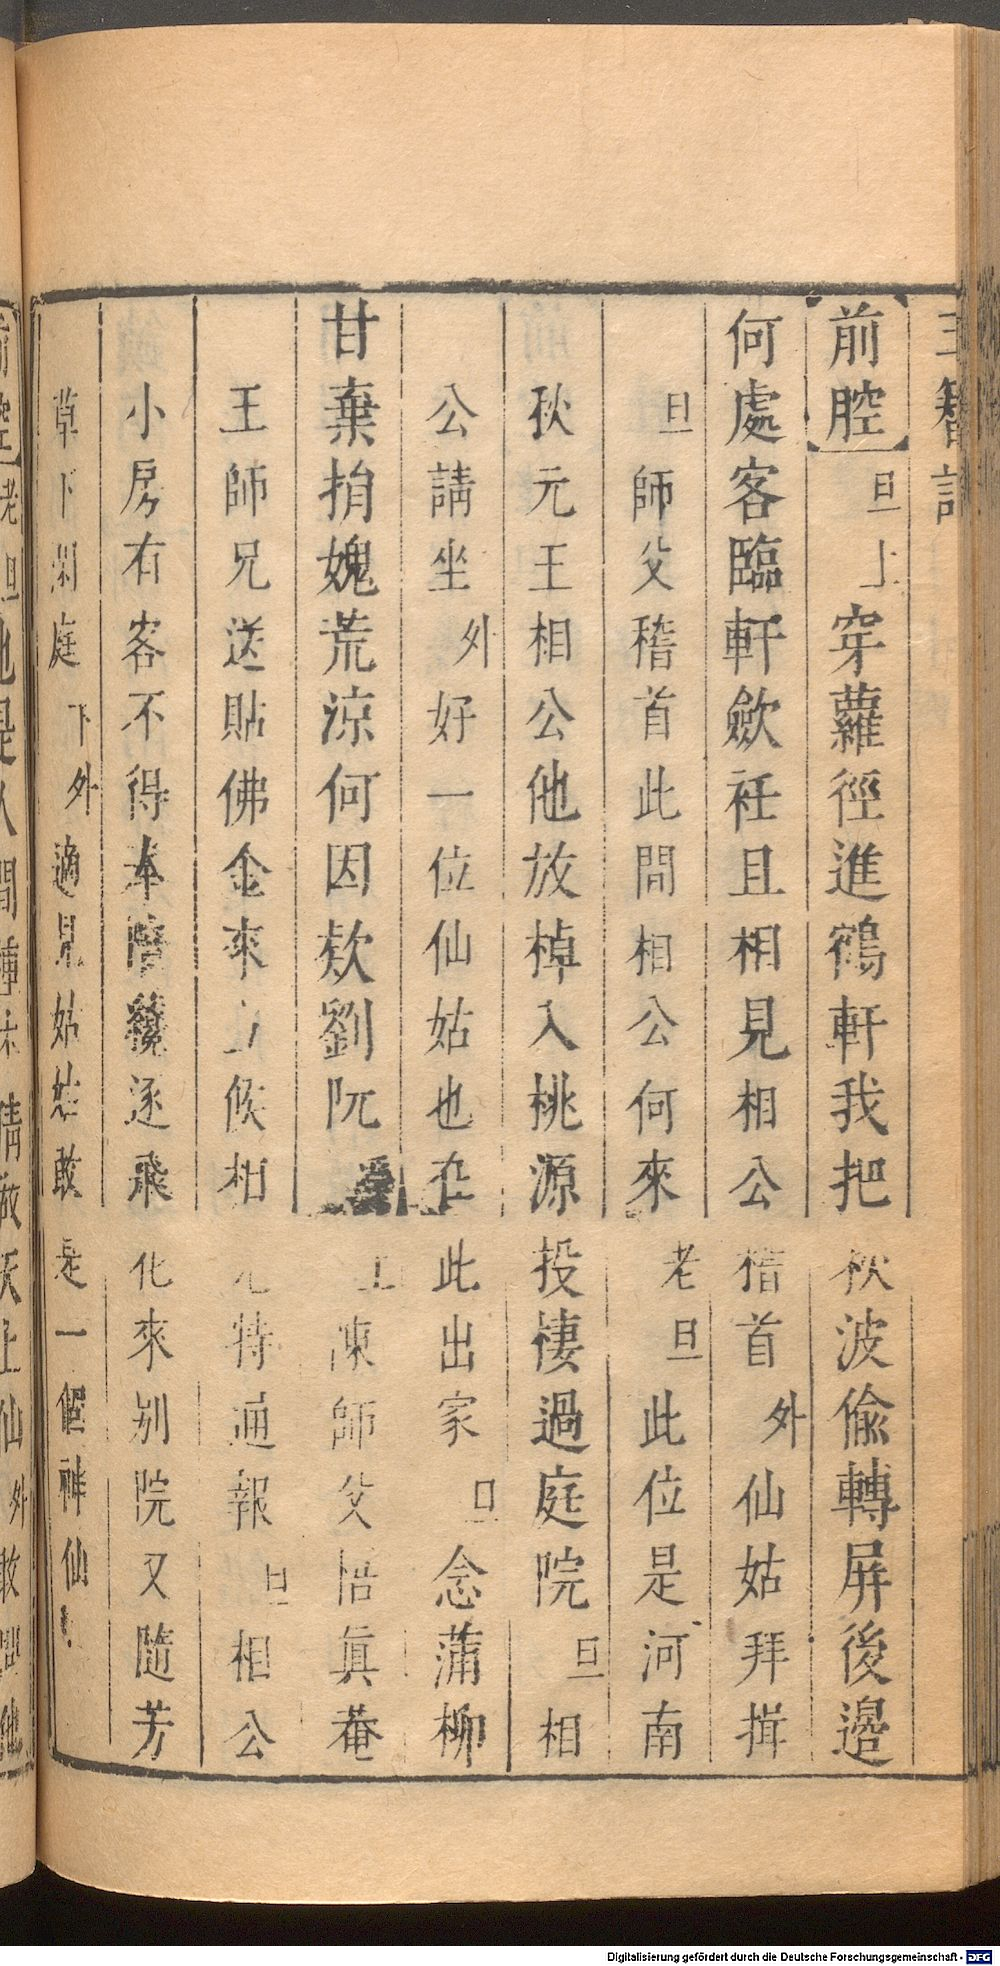 玉簪記
前腔 旦上 穿蘿徑進鶴軒我把秋波偸轉屛後邊
何處客臨軒歛衽且相見相公稽首 外 仙姑拜揖
旦 師父稽首此間相公何來 老旦 此位是河南
秋元王相公他放棹入桃源投棲過庭院 旦 相
公請坐 外 好一位仙姑也在此出家 旦 念蒲柳
甘棄捐媿荒涼何因欵劉阮 凍師父悟眞菴
王師兄送貼佛金來 候相 特通報 旦 相公
小房有客不得奉陪纔逐飛化來别院又隨芳
草下閒庭 下 外 適見姑姑敢是一個神仙
Digitalisierung gefördert durch die Deutsche Forschungsgemeinschaft - DFG